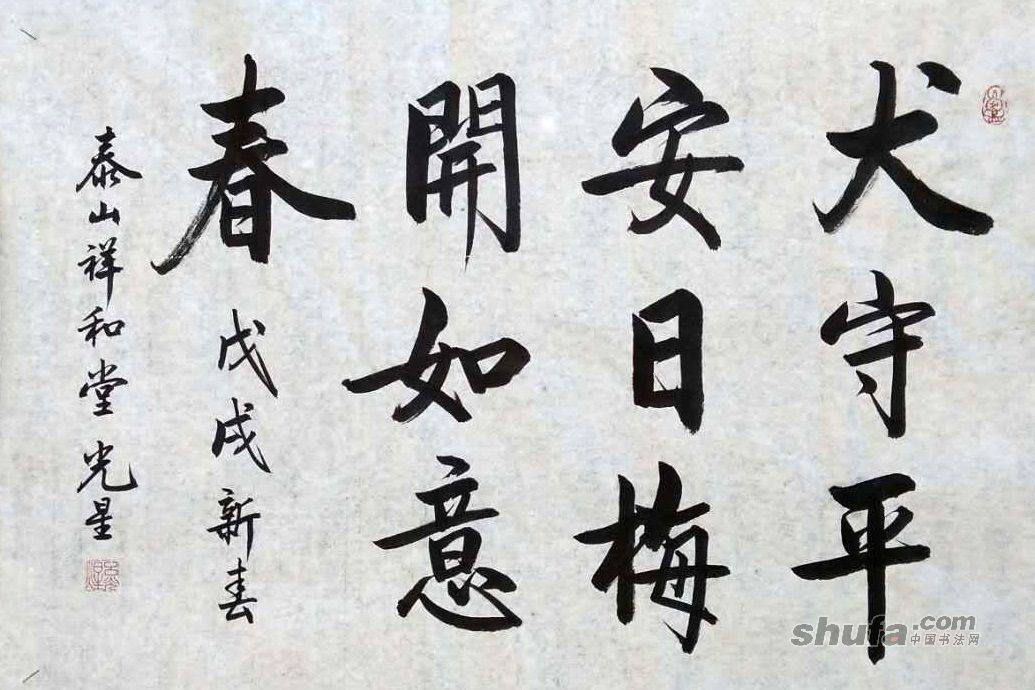 犬守平
安日梅
開如意
春
戊戌新春
泰山祥和堂 光星
shufa.com
中国书法网